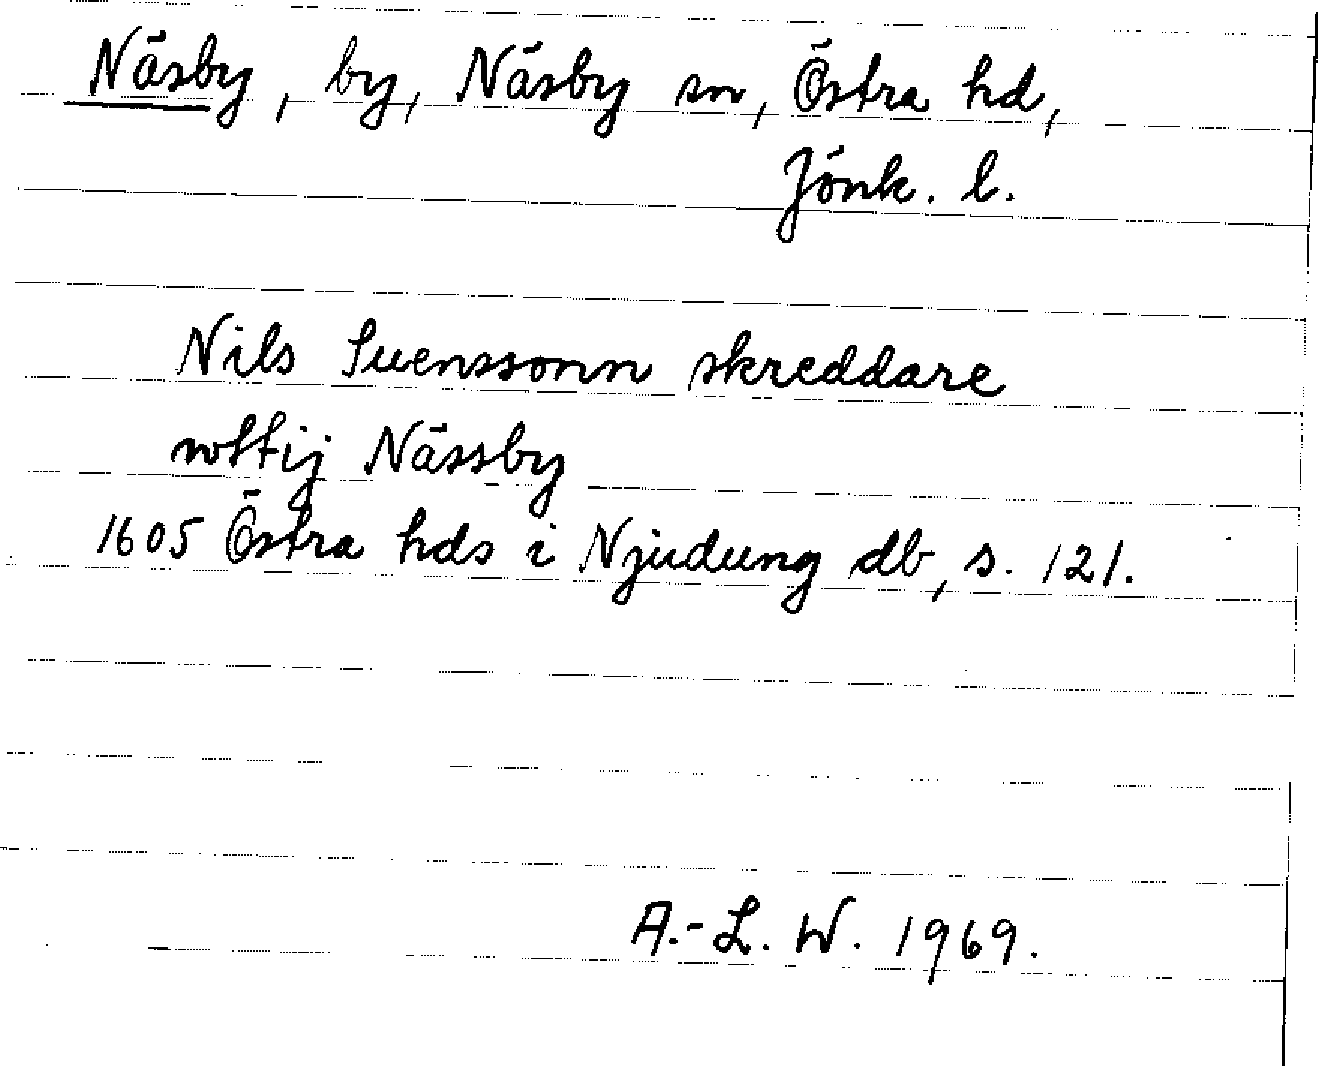 Näsby, by, Näsby sn, Östra hd,
Jönk. l.
Nils Suenssonn skreddare
wttij Nässby
1605 Östra hds i Njudung db, s. 121.
A.-L. W. 1969.